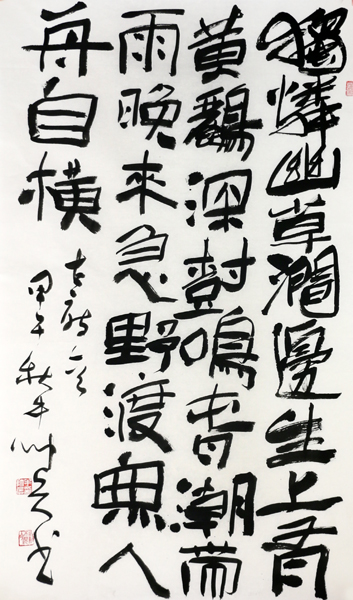 獨憐幽草澗邊生上有
黄鸝深樹鳴春潮帶
雨晚来急野渡無人
舟自橫
甲午秋
书